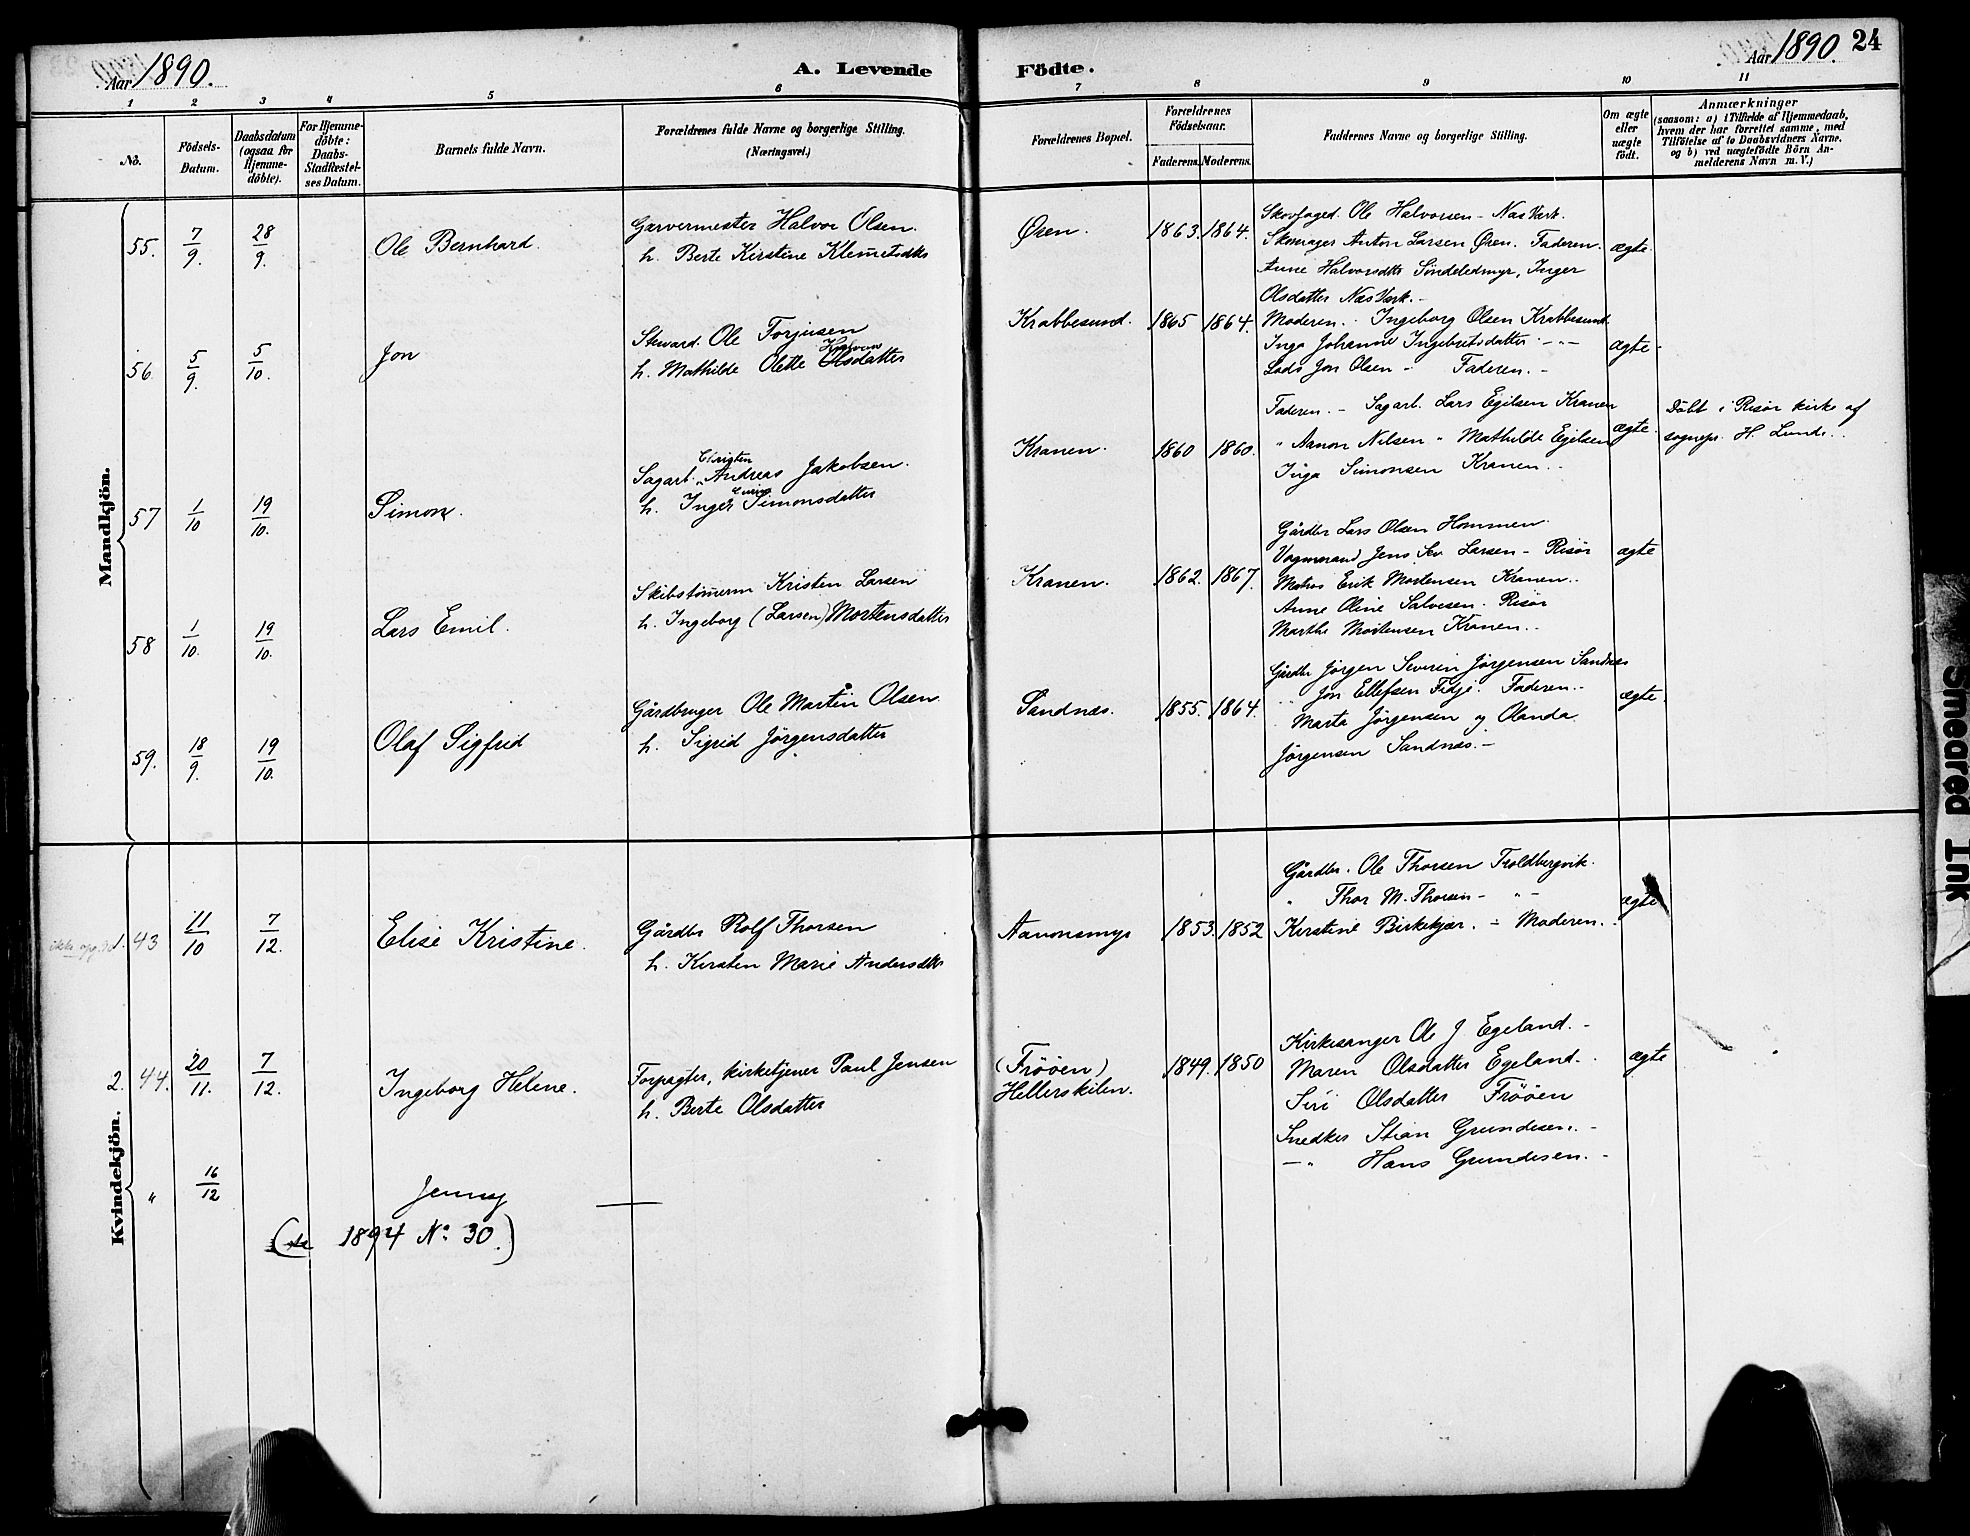 Aar 1890.
A. Levende Födte.
Aar 1890. 24
1 2 3 4 5 6 7 8 9 10 11
No.
Födsels-Datum.
Daabsdatum (ogsaa for Hjemme-döbte).
For Hjemme-döbte: Daabs-Stadfæstel-ses Datum.
Barnets fulde Navn.
Forældrenes fulde Navne og borgerlige Stilling.
(Næringsvei.)
Forældrenes Bopæl.
Forældrenes Födselsaar.
Faderens. Moderens.
Faddernes Navne og borgerlige Stilling.
Om ægte eller uægte födt.
Anmærkninger
(saasom: a) i Tilfælde af Hjemmedaab,
hvem der har forrettet samme, med
Tilföielse af to Daabsvidners Navne.
og b) ved uægtefödte Börn An-
melderens Navn m. V.)
Mandkjön.
55. 7/9. 28/9. Ole Bernhard.
Garvermester Halvor Olsen.
h. Berte Kirstine Klemetsdtr
Øren. 1863. 1864.
Skovfoged. Ole Halvorsen - Næs Værk.
Skomager Anton Larsen Øren. Faderen.
Anne Halvorsdtr Söndeledmyr, Inger
Olsdatter Næs Værk. -
ægte.
56 5/9. 5/10. Jon
Steward. Ole Torjusen
h. Mathilde Olette Olsdatter
Krabbesund. 1865 1864.
Moderen. Ingeborg Olsen Krabbesund.
Inga Johanne Ingebretsdatter - " -
Lods Jon Olsen - Faderen. -
ægte.
57 1/10 19/10. Simon.
Sagarb. Andreas Jakobsen.
h. Inger Simonsdatter
Kranen. 1860 1860.
Faderen. - Sagarb. Lars Egilsen Kranen
" Aanon Nilsen " Mathilde Egilsen
Inga Simonsen Kranen.
ægte.
Döbt i Risør kirke af
sognepr. H. Lunde.
58 1/10. 19/10. Lars Emil.
Skibstömmerm Kristen Larsen
h. Ingeborg (Larsen) Mortensdatter
Kranen. 1862. 1867.
Gårdbr Lars Olsen Hommen.
Vognmand Jens Sev. Larsen - Risør
Matros Erik Mortensen Kranen.
Anne Oline Salvesen. Risør
Marthe Mortensen Kranen.
ægte
59. 18/9. 19/10. Olaf Sigfrid
Gårdbruger Ole Martin Olsen
h. Sigrid Jörgensdatter
Sandnæs. 1855. 1864.
Gårdbr Jörgen Severin Jörgensen Sandnæs
" Jon Ellefsen Fidje. Faderen. -
Marta Jörgensen og Olanda
Jörgensen Sandnæs. -
ægte.
Kvindekjön.
1. 43 11/10 7/12. Elise Kristine.
Gårdbr Rolf Thorsen
h. Kirsten Marie Andersdtr
Aanonsmyr 1853. 1852
Gårdbr. Ole Thorsen Troldbergvik.
" Thor M. Thorsen - " -
Kirstine Birkekjær. - Moderen.
ægte
2. 44. 20/11. 7/12. Ingeborg Helene.
Forpagter, kirketjener Paul Jensen
h. Berte Olsdatter
(Frööen)
Hellerskilen.
1849. 1850
Kirkesanger Ole J Egeland. -
Maren Olsdatter Egeland.
Siri Olsdatter Frööen
Snedker Stian Grundesen. -
- " Hans Grundesen. -
ægte
" 16/12 Jenny
(se 1894 No. 30.)
Smeared Ink